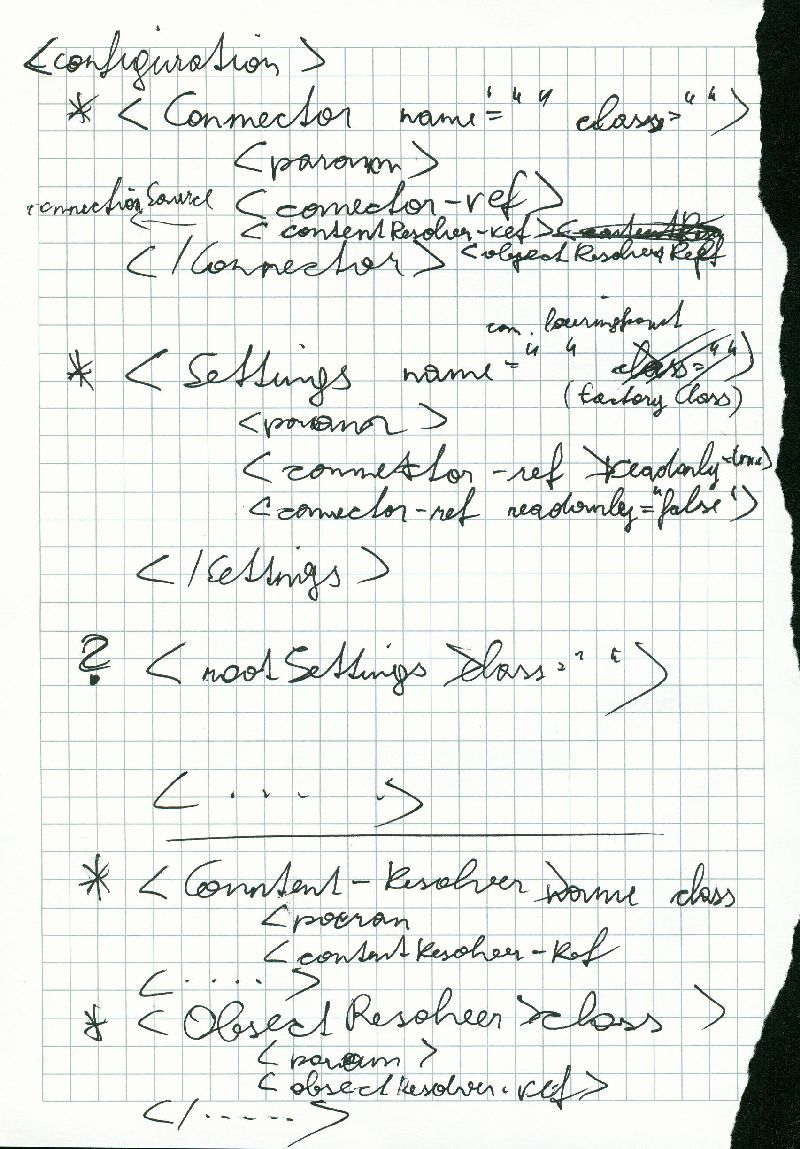 <configuration>
* < Connector name="" class="">
<param>
<connector-ref>
connectionSource
<contentResolver-ref>
</Connector> <objectResolverReff
* < Settings name="" class="">
(factory Class)
<param>
<connector-ref >readonly=true>
<connector-ref readownly="false">
</Settings>
? < rootSettings >class="">
<.... >
* < Conntent-Resolver >name class
<param
<contentResolver-Ref
<.....>
* < ObjectResolver >class >
<param>
<objectResolver-ref>
</.....>